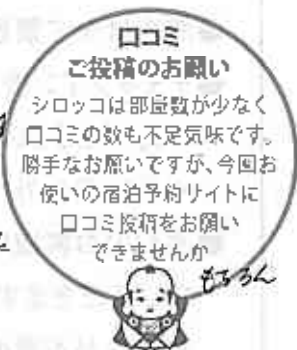 口コミ
ご投稿のお願い
シロッコは部屋数が少なく
口コミの数も不足気味です。
勝手なお願いですが、今回お
使いの宿泊予約サイトに
口コミ投稿をお願い
できませんか
もちろん